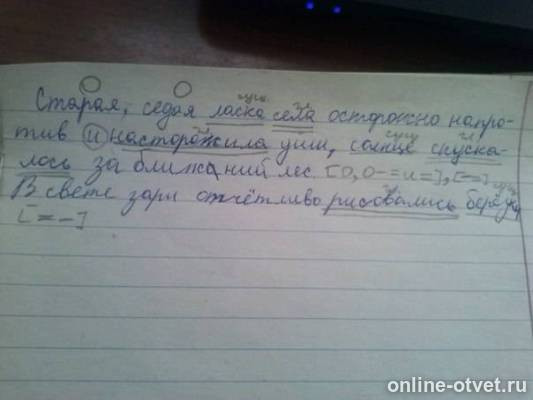 сущ. гл.
Старая, седая ласка села осторожно напро-
тив и насторожила уши, солнце спуска-
лось за ближний лес. [О, О - = и =], [- =]
В свете зари отчётливо рисовались берёзы
[= -]
online-otvet.ru